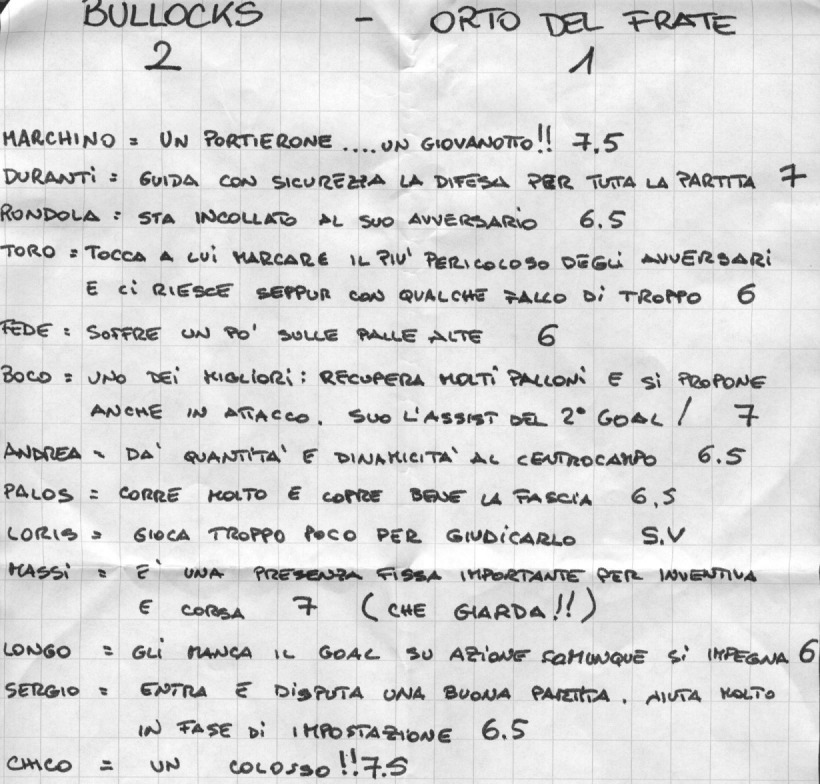 BULLOCKS - ORTO DEL FRATE
2 1
MARCHINO = UN PORTIERONE ....UN GIOVANOTTO!! 7.5
DURANTI = GUIDA CON SICUREZZA LA DIFESA PER TUTTA LA PARTITA 7
RONDOLA = STA INCOLLATO AL SUO AVVERSARIO 6.5
TORO = TOCCA A LUI MARCARE IL PIU' PERICOLOSO DEGLI AVVERSARI
E CI RIESCE SEPPUR CON QUALCHE FALLO DI TROPPO 6
FEDE = SOFFRE UN PO' SULLE PALLE ALTE 6
BOCO = UNO DEI MIGLIORI: RECUPERA MOLTI PALLONI E SI PROPONE
ANCHE IN ATTACCO. SUO L'ASSIST DEL 2° GOAL / 7
ANDREA = DA' QUANTITA' E DINAMICITA' AL CENTROCAMPO 6.5
PALOS = CORRE MOLTO E COPRE BENE LA FASCIA 6.5
LORIS = GIOCA TROPPO POCO PER GIUDICARLO S.V
MASSI = E' UNA PRESENZA FISSA IMPORTANTE PER INVENTIVA
E CORSA 7 (CHE GIARDA!!)
LONGO = GLI MANCA IL GOAL SU AZIONE COMUNQUE SI IMPEGNA 6
SERGIO = ENTRA E DISPUTA UNA BUONA PARTITA. AIUTA MOLTO
IN FASE DI IMPOSTAZIONE 6.5
CHICO = UN COLOSSO!! 7.5